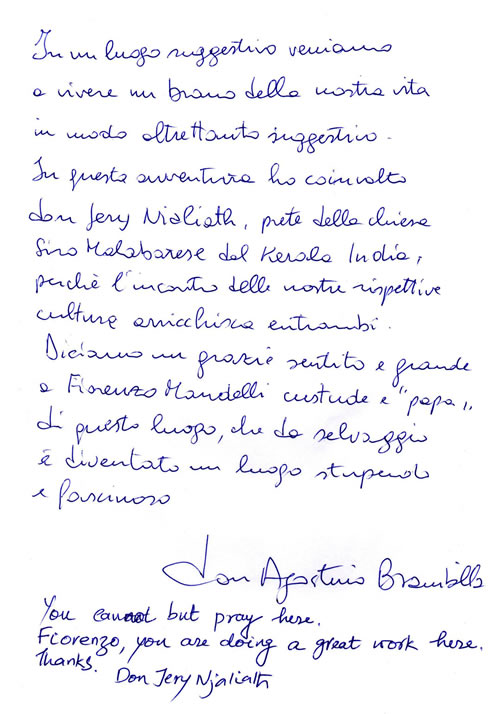 In un luogo suggestivo veniamo
a vivere un brano della nostra vita
in modo altrettanto suggestivo.
In questa avventura ho coinvolto
don Jery Nialiath, prete della chiesa
Siro Malabarese del Kerala India,
perchè l'incontro delle nostre rispettive
culture arricchisca entrambi.
Diciamo un grazie sentito e grande
a Fiorenzo Mandelli custode e "papa„
di questo luogo, che da selvaggio
è diventato un luogo stupendo
e fascinoso
don Agostino Brambilla
You cannot but pray here.
Fiorenzo, you are doing a great work here.
Thanks.
Don Jery Njaliath